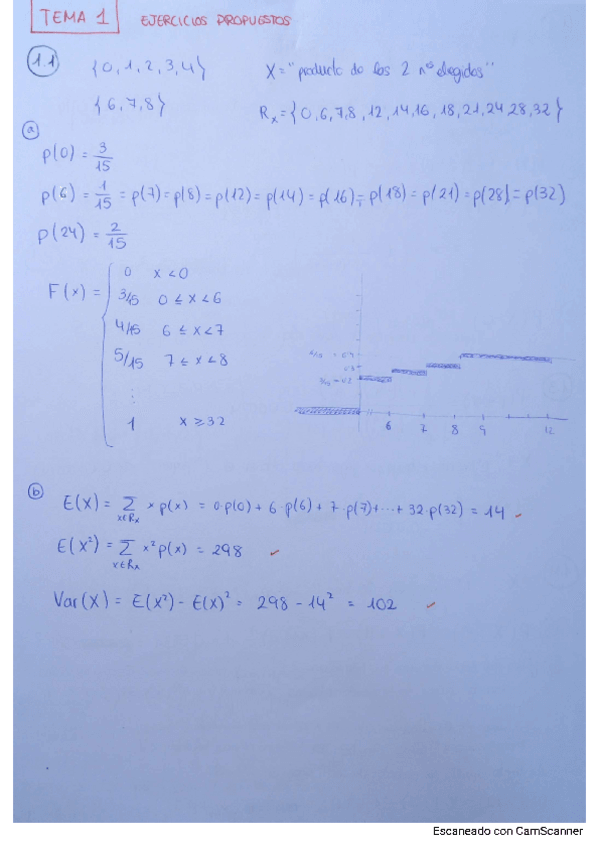 TEMA 1 EJERCICIOS PROPUESTOS
1.1 {0,1,2,3,4} X="producto de los 2 nºs elegidos"
{6,7,8} Rx={0,6,7,8,12,14,16,18,21,24,28,32}
a
p(0) = 3/15
p(6) = 1/15 = p(7) = p(8) = p(12) = p(14) = p(16) = p(18) = p(21) = p(28) = p(32)
p(24) = 2/15
F(x) = { 0 x<0
3/15 0 ≤ x < 6
4/15 6 ≤ x < 7
5/15 7 ≤ x < 8
⋮
1 x ≥ 32
6 7 8 9 12
b
E(X) = Σ x p(x) = 0·p(0) + 6·p(6) + 7·p(7) + ... + 32·p(32) = 14 ✓
x∈Rx
E(X²) = Σ x² p(x) = 298 ✓
x∈Rx
Var(X) = E(X²) - E(X)² = 298 - 14² = 102 ✓
Escaneado con CamScanner